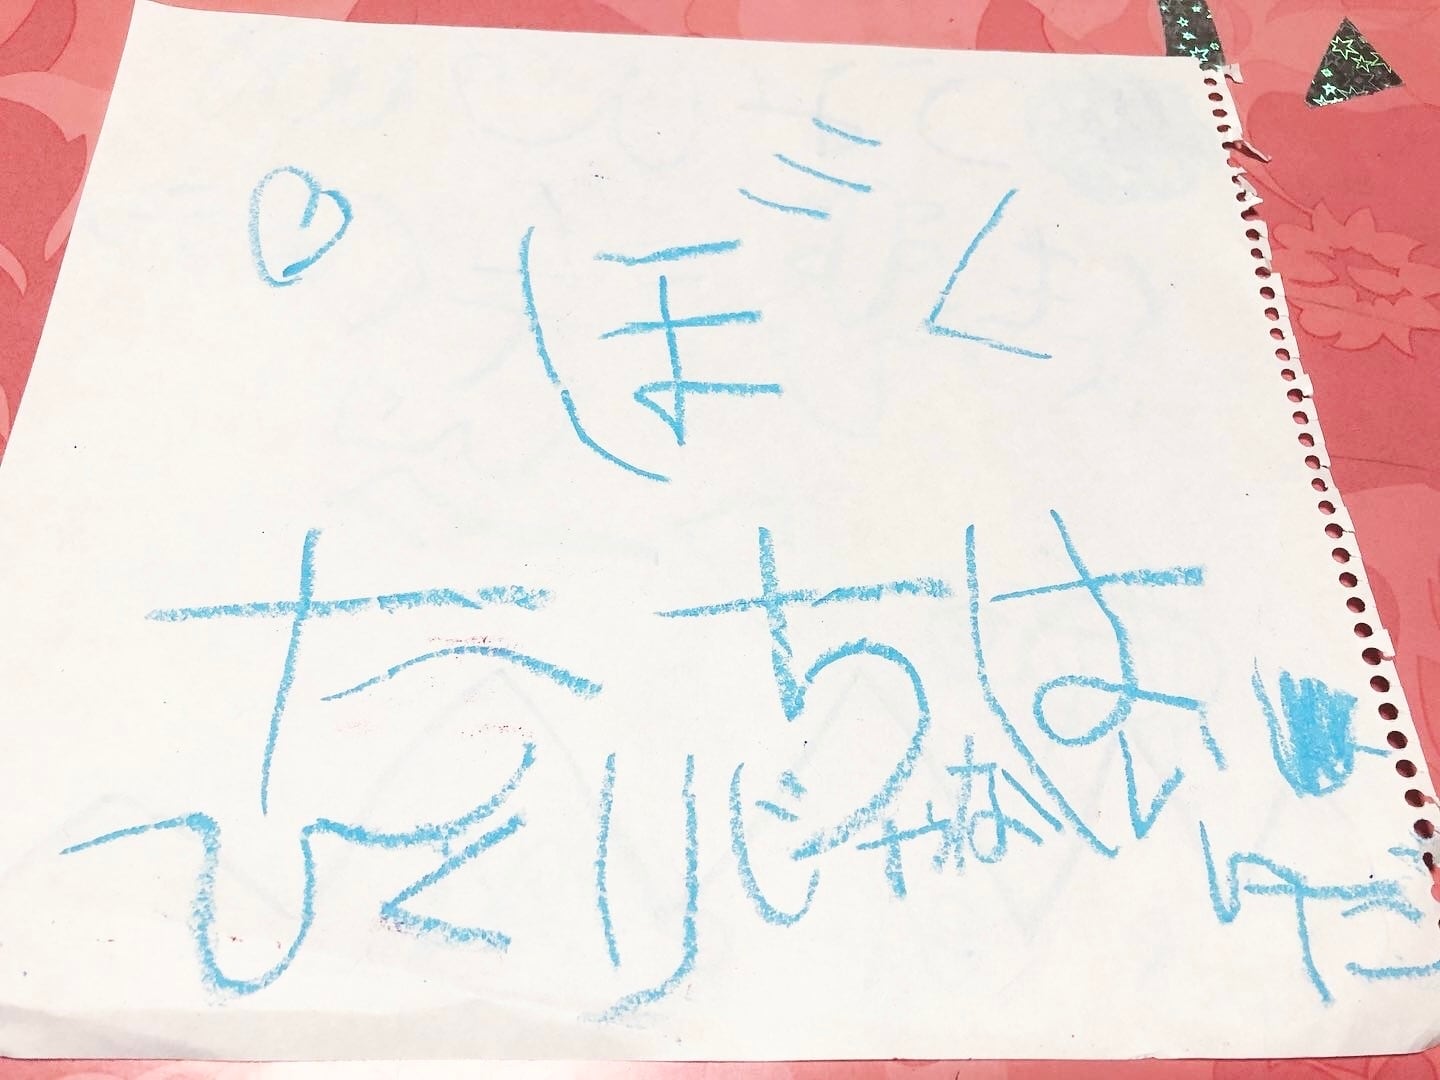 ぼく
たちは
ひとりじゃないんだ